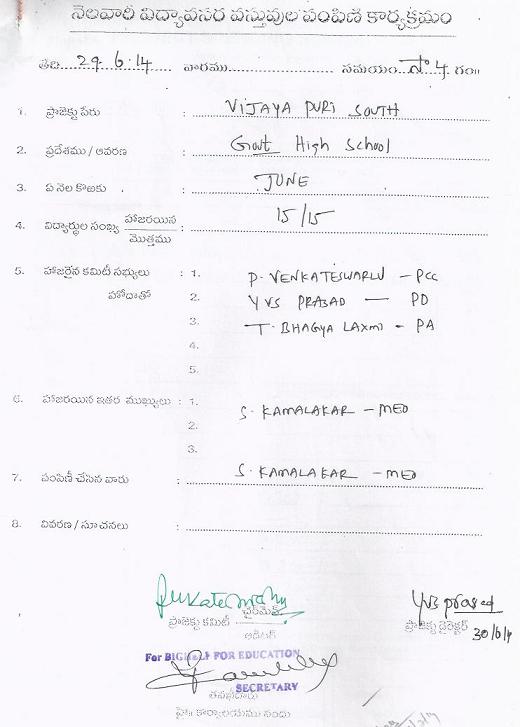 నెలవారి విద్యావసర వస్తువుల పంపిణి కార్యక్రమం
తేది 29.6.14 వారము సమయం సా 4 గం॥
1. ప్రాజెక్టు పేరు : VIJAYA PURI SOUTH
2. ప్రదేశము / ఆవరణ : Govt High School
3. ఏ నెల కొఱకు : JUNE
4. విద్యార్థుల సంఖ్య హాజరయిన / మొత్తము : 15/15
5. హాజరైన కమిటీ సభ్యులు : 1. P. VENKATESWARLU - PCC
హోదాతో 2. YVS PRASAD — PD
3. T. BHAGYA LAXMI - PA
4.
5.
6. హాజరయిన ఇతర ముఖ్యులు : 1. S. KAMALAKAR - MEO
2.
3.
7. పంపిణీ చేసిన వారు : S. KAMALAKAR - MEO
8. వివరణ / సూచనలు :
ఛైర్మెన్
yvs prasad
ప్రాజెక్టు కమిటీ
ఆడిటర్
ప్రాజెక్టు డైరెక్టర్ 30/6/14
For BIG HELP FOR EDUCATION
SECRETARY
కార్యాలయము నందు